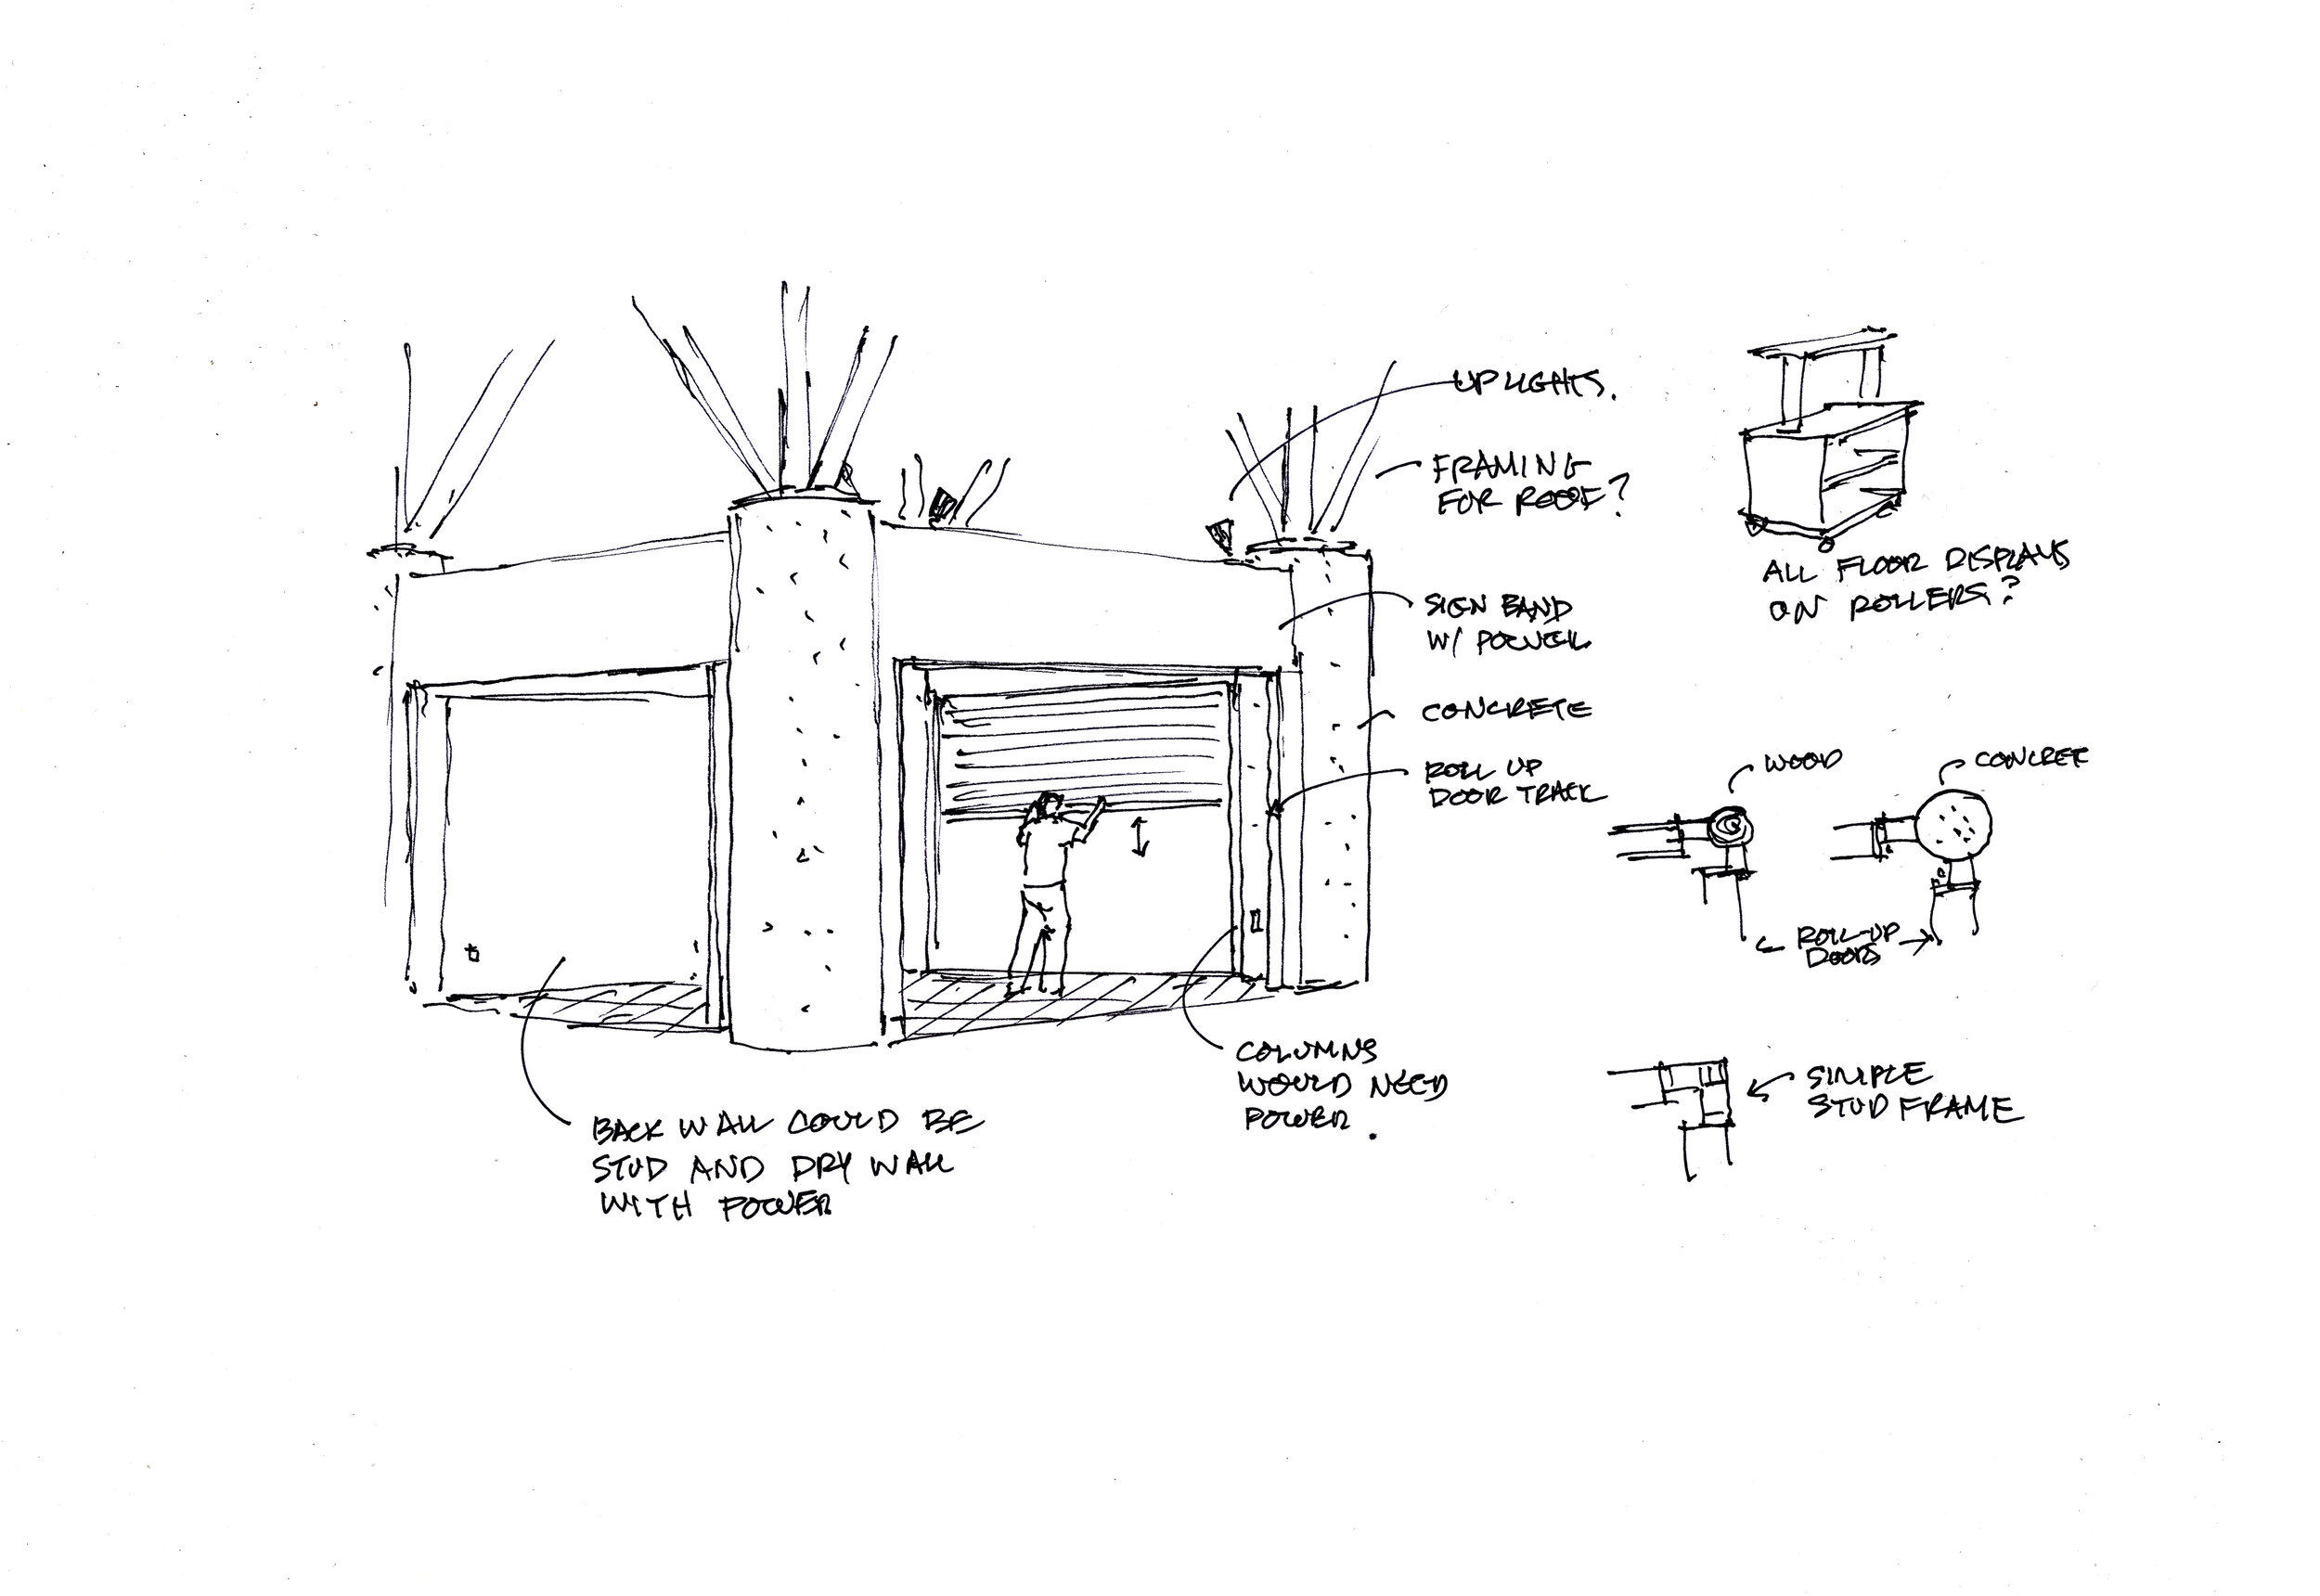 UPLIGHTS.
FRAMING
FOR ROOF?
SIGN BAND
W/ POWER
CONCRETE
ROLL UP
DOOR TRACK
COLUMNS
WOULD NEED
POWER.
BACK WALL COULD BE
STUD AND DRY WALL
WITH POWER
ALL FLOOR DISPLAYS
ON ROLLERS?
WOOD
CONCRETE
ROLL-UP
DOORS
SIMPLE
STUD FRAME